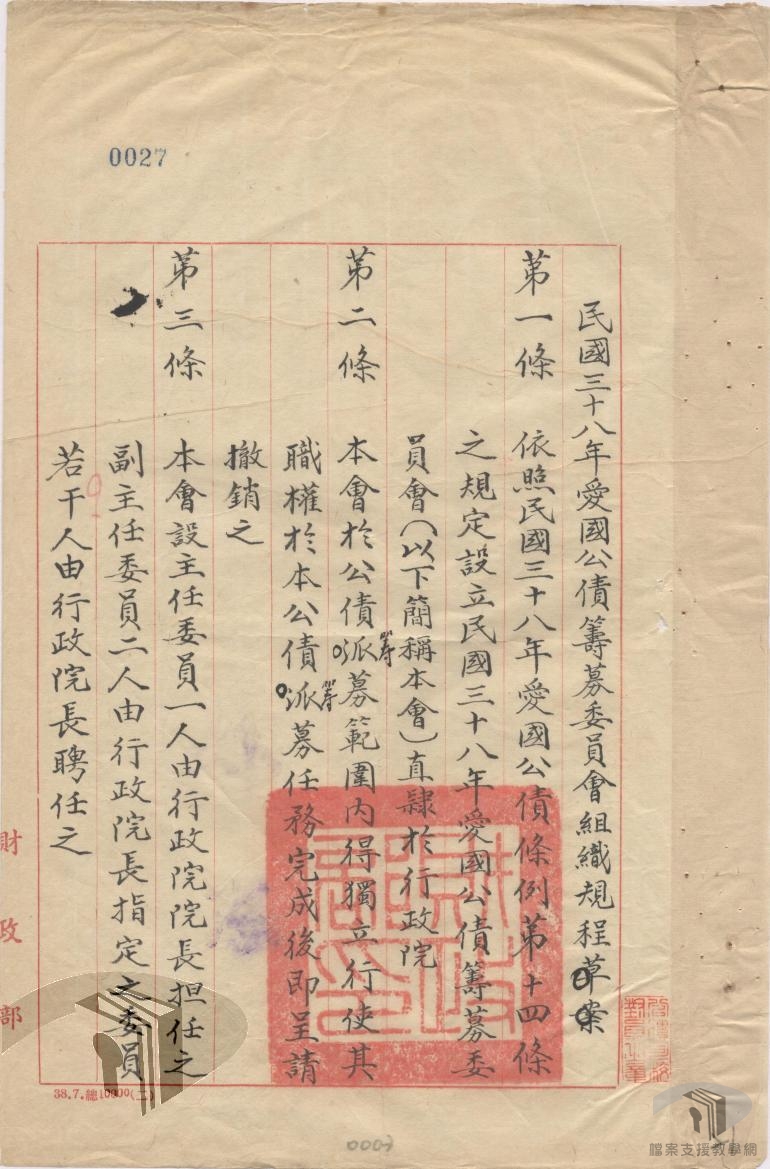 0027
民國三十八年愛國公債籌募委員會組織規程草案
第一條 依照民國三十八年愛國公債條例第十四條
之規定設立民國三十八年愛國公債籌募委
員會(以下簡稱本會)直隸於行政院
第二條 本會於公債派籌募範圍內得獨立行使其
職權於本公債派籌募任務完成後即呈請
撤銷之
第三條 本會設主任委員一人由行政院院長担任之
副主任委員二人由行政院長指定之委員
若干人由行政院長聘任之
財政部
38.7.總10000(二)
0003
檔案支援教學網